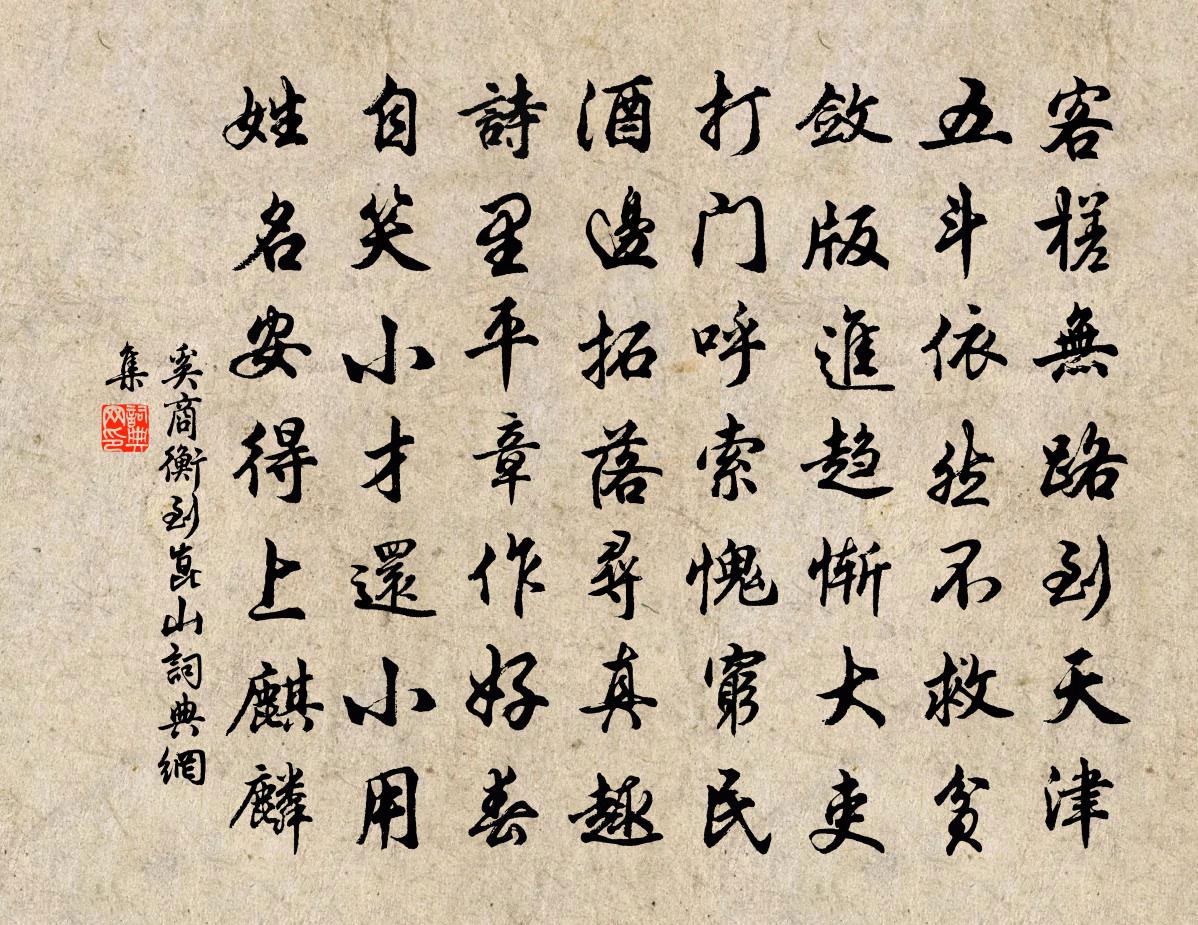 客槎無路到天津
五斗依然不救貧
斂版進趨慚大吏
打门呼索愧窮民
酒邊拓落尋真趣
詩里平章作好春
自笑小才還小用
姓名安得上麒麟
奚商衡到崑山詞典網
集
詞典
网印